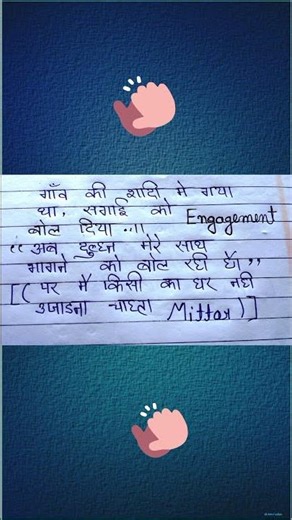 गाँव की शादी मे गया
था, सगाई को Engagement
बोल दिया ..।।
“ अब दुल्हन मेरे साथ
भागने को बोल रही है। ”
[( पर मै किसी का घर नही
उजाड़ना चाहता Mittar )]